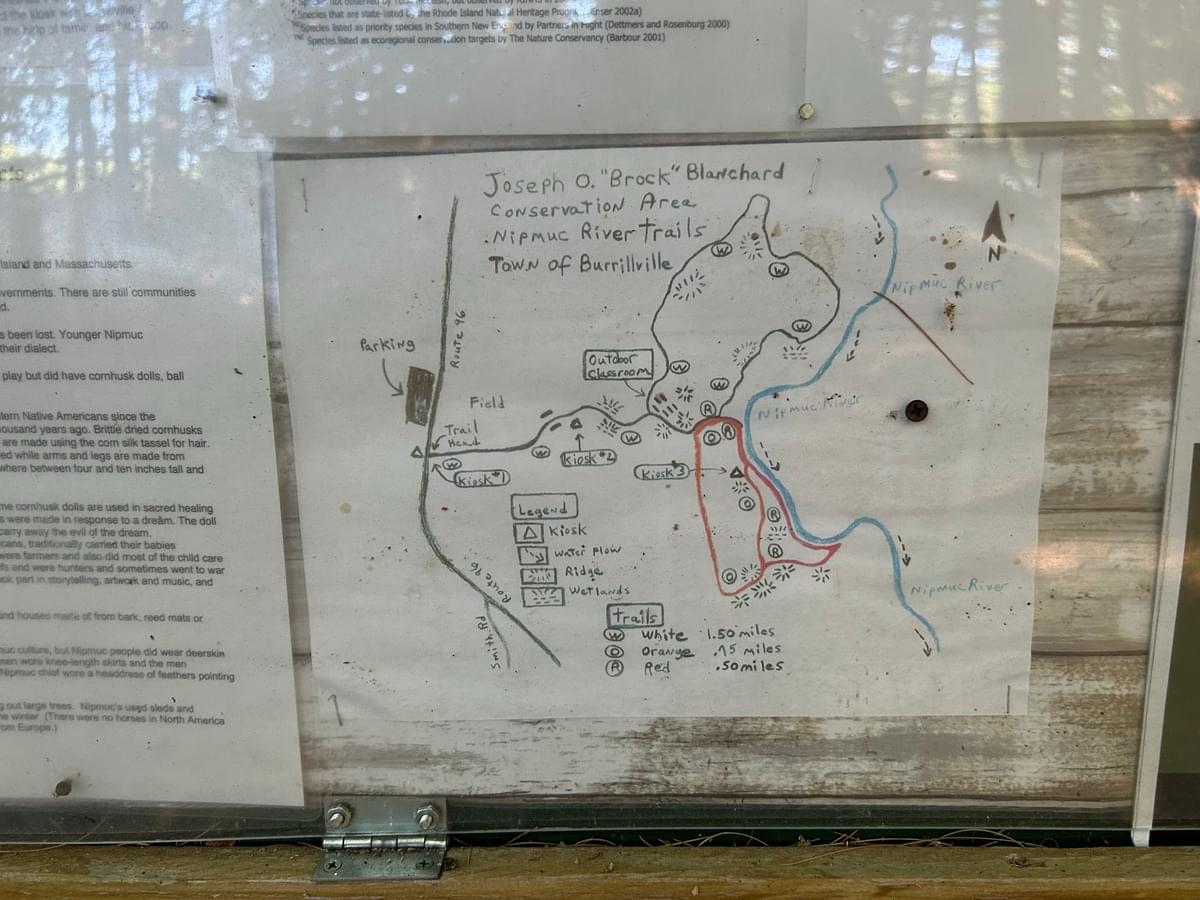 the kiosk
the help of family and his troop
Species that are state-listed by the Rhode Island Natural Heritage
Species listed as priority species in Southern New England by Partners in Flight (Dettmers and Rosenburg 2000)
Species listed as ecoregional conservation targets by The Nature Conservancy (Barbour 2001)
Island and Massachusetts.
vernments. There are still communities
d.
s been lost. Younger Nipmuc
their dialect.
play but did have cornhusk dolls, ball
tern Native Americans since the
ousand years ago. Brittle dried cornhusks
are made using the corn silk tassel for hair.
ed while arms and legs are made from
where between four and ten inches tall and
me cornhusk dolls are used in sacred healing
s were made in response to a dream. The doll
carry away the evil of the dream.
cans, traditionally carried their babies
were farmers and also did most of the child care
fs and were hunters and sometimes went to war
ok part in storytelling, artwork and music, and
and houses made of from bark, reed mats or
muc culture, but Nipmuc people did wear deerskin
men wore knee-length skirts and the men
Nipmuc chief wore a headdress of feathers pointing
g out large trees. Nipmuc's used sleds and
he winter (There were no horses in North America
om Europe.)
Joseph O. "Brock" Blanchard
Conservation Area
Nipmuc River Trails
Town of Burrillville
N
Nipmuc River
Route 96
Parking
W
W
W
Outdoor
Classroom
W
W
Nipmuc River
Field
R
Trail
Head
W
W
O
R
Kiosk #2
W
Kiosk #1
Kiosk #3
O
R
Legend
Kiosk
Water Flow
Ridge
Wetlands
R
O
Route 96
Smith Rd
Nipmuc River
Trails
W White 1.50 miles
O Orange .75 miles
R Red .50 miles